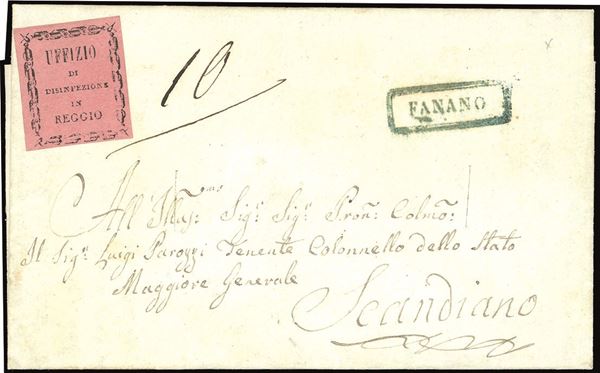 UFFIZIO
DI
DISINFEZIONE
IN
REGGIO
10
FANANO
All' Illus:mo Sig:r Sig:r Pron: Colmo:
Il Sig:r Luigi Parozzi Tenente Colonnello dello Stato
Maggiore Generale
Scandiano